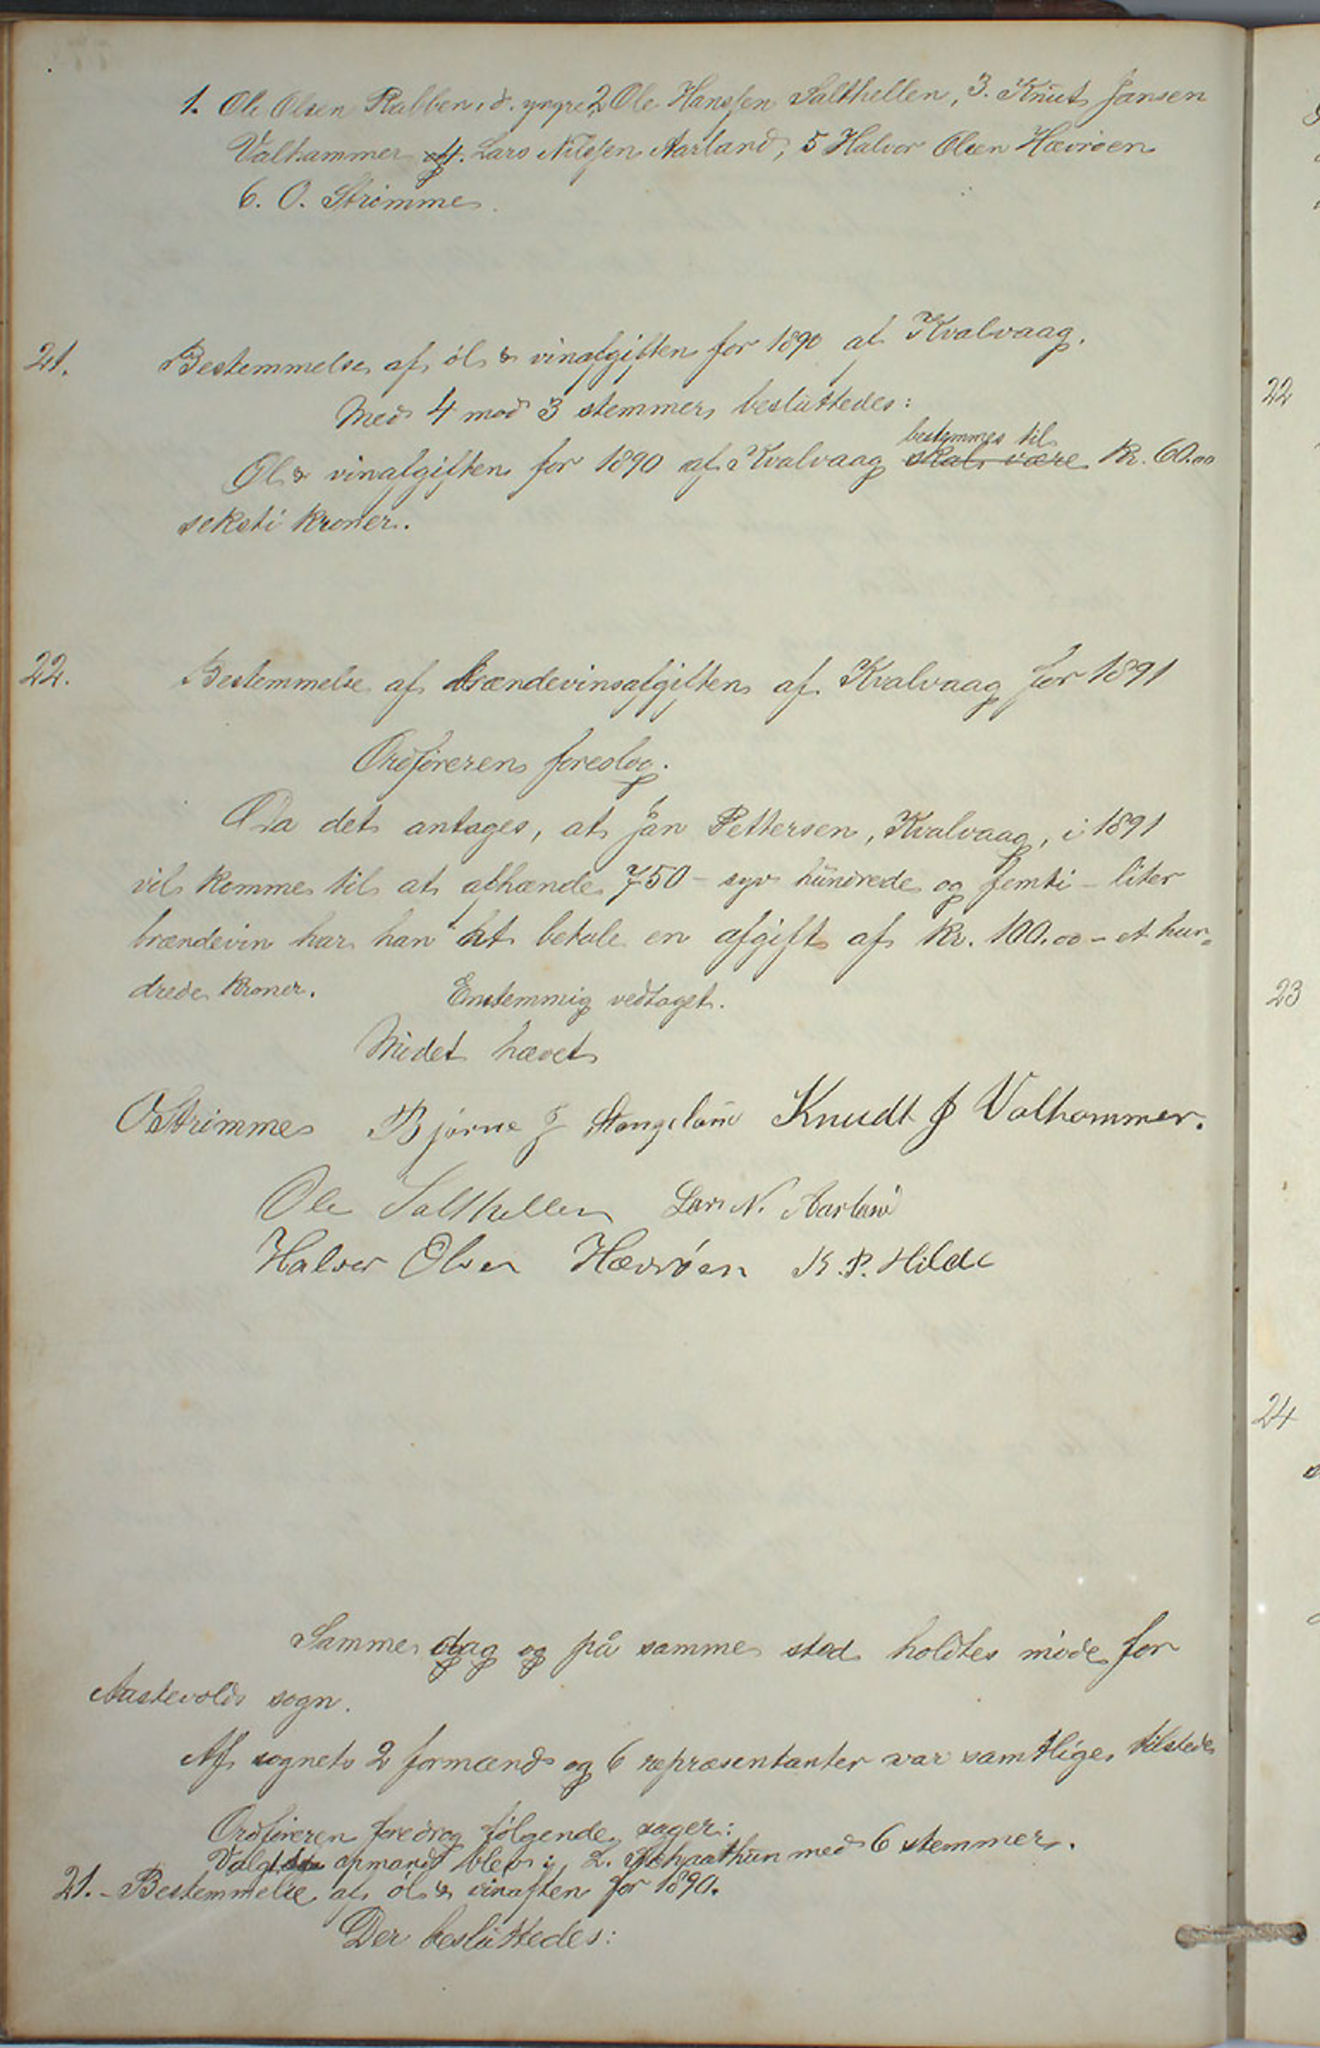 1. Ole Olsen Rabben, d. yngre, 2 Ole Hanssen Salthellen, 3. Knut Jansen
Valhammer 4. Lars Nilssen Aarland, 5 Halvor Olsen Hævrøen
6. O. Strømme.
21. Bestemmelse af øl & vinafgiften for 1890 at Kvalvaag.
Med 4 mod 3 stemmer besluttedes:
bestemmes til
Øl & vinafgiften for 1890 af Kvalvaag skal være kr. 60.00
seksti kroner.
22. Bestemmelse af brændevinsafgiften af Kvalvaag for 1891
Ordføreren foreslog.
Da det antages, at Jan Pettersen, Kvalvaag, i 1891
vil komme til at afhænde 750 – syv hundrede og femti – liter
brændevin har han at betale en afgift af kr. 100.00 – et hun-
drede kroner. Enstemmig vedtaget.
Mødet hævet
O Strømme Bjørne J Stangeland Knudt J Valhammer.
Ole Salthellen Lars N. Aarland
Halver Olsen Hævrøen K. P. Hilde
Samme dag og på samme sted holdtes møde for
Austevolds sogn.
Af sognets 2 formænd og 6 repræsentanter var samtlige tilstede
Ordføreren foredrog følgende sager:
Valgt opmand blev: L. med 6 stemmer.
21. – Bestemmelse af øl & vinaften for 1890.
Der besluttedes:
22
23
24